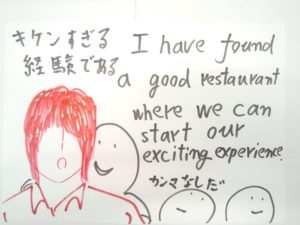 キケンすぎる
経験である
I have found
a good restaurant
where we can
start our
exciting experience.
カンマなしだ